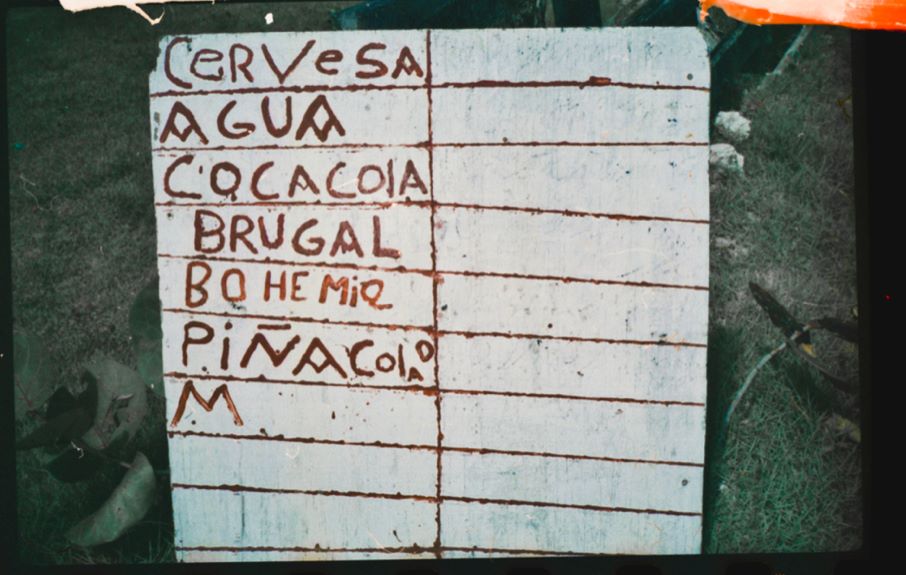 CeRVeSA
AGUA
COCACOlA
BRUGAL
BOHEMiA
PiÑACOlADA
M